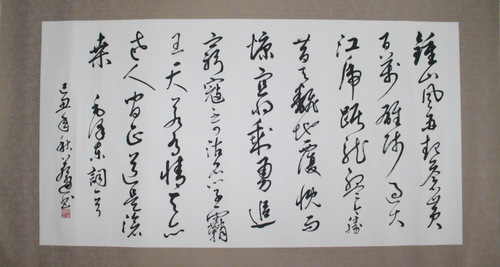 鍾山風雨起蒼黃
百萬雄師過大
江虎踞龍盤今勝
昔天翻地覆慨而
慷宜將剩勇追
窮寇不可沽名學霸
王天若有情天亦
老人間正道是滄
桑 毛澤東詞一首
己丑年秋 書